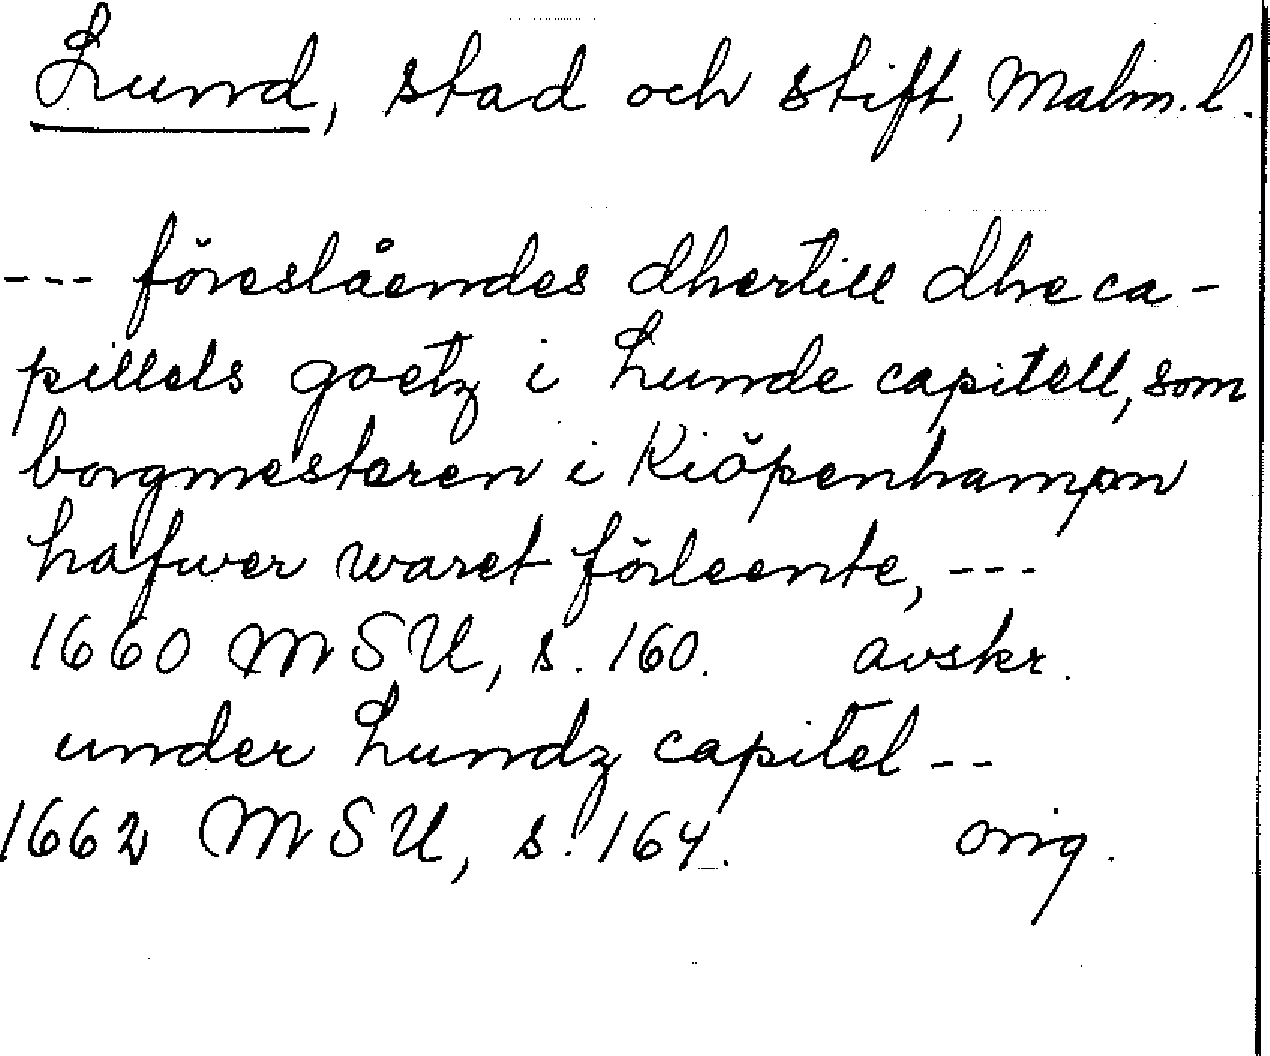 Lund, stad och stift, Malm. l.
--- föreslåendes dhertill dhe ca-
pillels goetz i Lunde capitell, som
borgmestaren i Kiöpenhampn
hafwer waret förleente, ---
1660 MSU, s. 160. avskr.
under Lundz capitel --
1662 MSU, s. 164. orig.